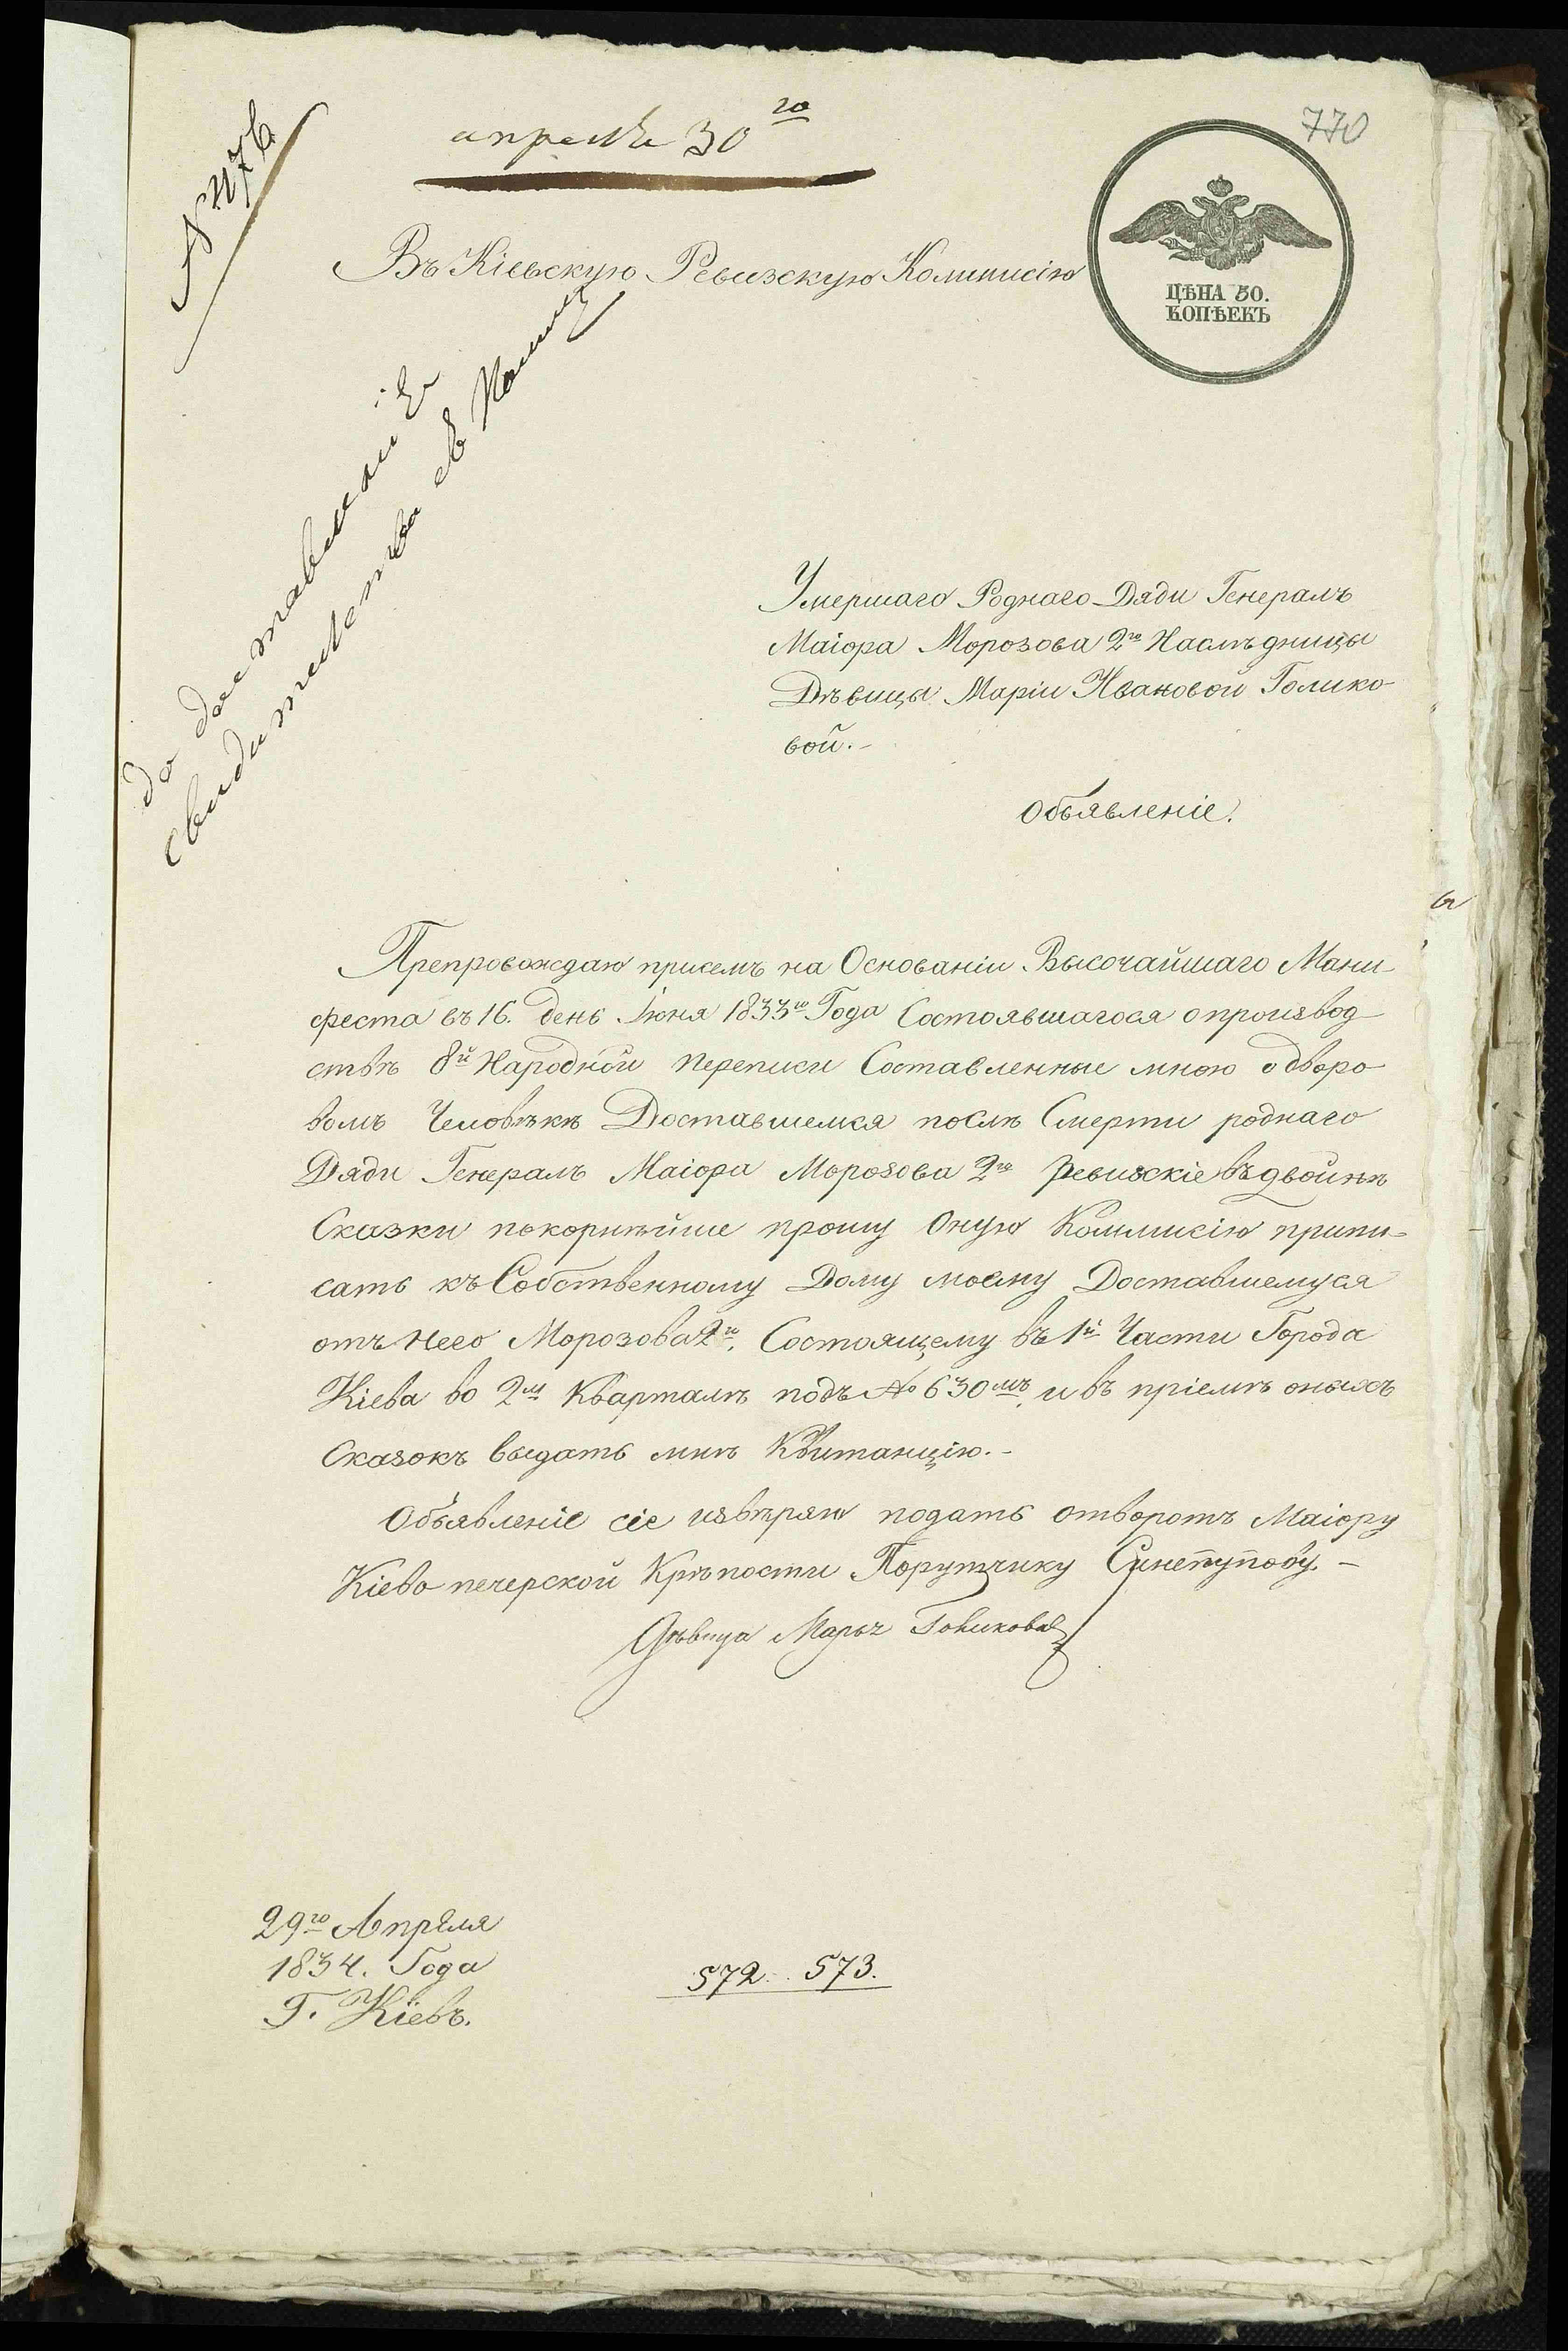 770
апреля 30го
Въ Кіевскую Ревизскую Коммисію
ЦѢНА 50.
КОПѢЕКЪ
до доставленіе
свидетелства въ
Умершаго Роднаго Дяди Генералъ
Маіора Морозова 2го Наслѣдницы
Дѣвицы Маріи Ивановой Голико
вой.-
Объявленіе.
Препровождаю присемъ на Основаніи Высочайшаго Мани-
феста въ 16. день Іюня 1833го Года Состоявшагося о производ
ствѣ 8й Народной переписи Составленные мною о дворо
вомъ Человѣкѣ Доставшемся послѣ Смерти роднаго
Дяди Генералъ Маіора Морозова 2го ревизскіе въ двойнѣ
Сказки покорнѣйше прошу Оную Коммисію припи-
сать къ Собственному Дому моему Доставшемуся
отъ Него Морозова 2го. Состоящему въ 1й Части Города
Кіева во 2м Кварталѣ подъ № 630мъ, и въ пріемѣ оныхъ
Сказокъ выдать мнѣ Квитанцію.-
Объявленіе сіе извѣряю подать отворотъ Маіору
Кіево печерской Крѣпости Порутчику Синепупову.-
Дѣвица Марья Голикова
29го Апрѣля
1834. Года
Г. Кіевъ.
572. 573.